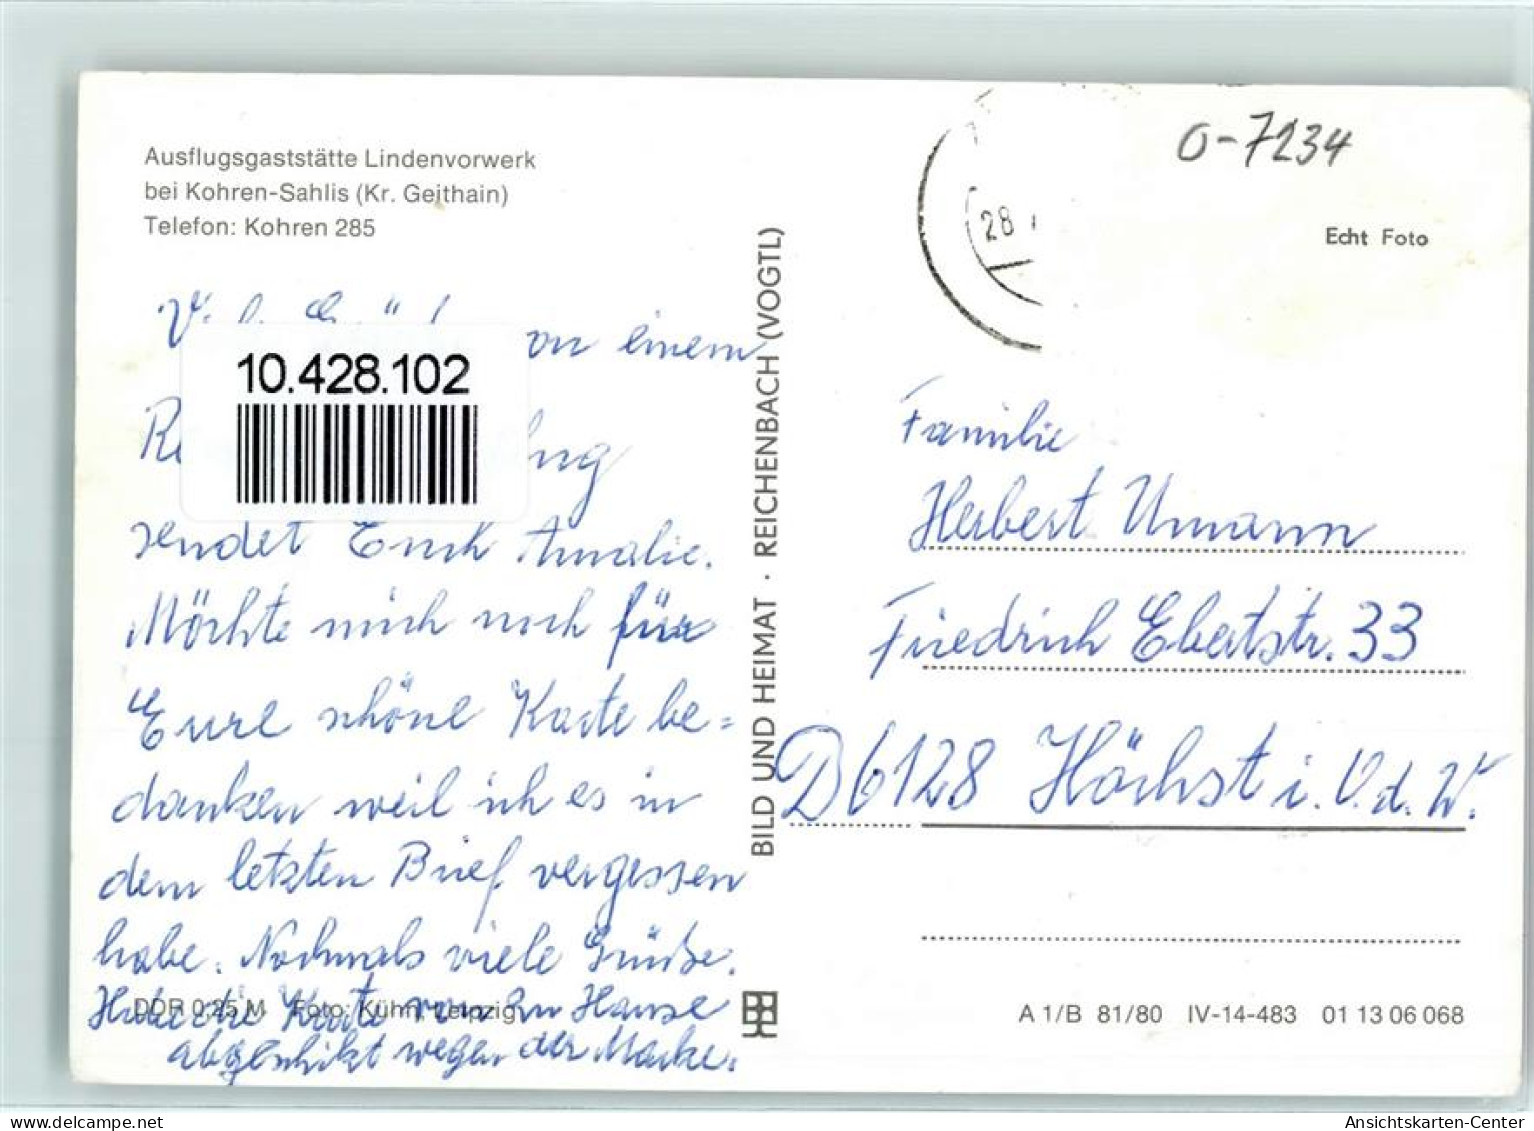 Ausflugsgaststätte Lindenvorwerk
bei Kohren-Sahlis (Kr. Geithain)
Telefon: Kohren 285
von einem
10.428.102
sendet Euch Amalie.
Möchte mich noch für
Eure schöne Karte be=
danken weil ich es in
dem letzten Brief vergessen
habe. Nochmals viele Grüße.
DDR 0,25 M Foto: Kühn, Leipzig
Habe die Karte von zu Hause
abgeschikt wegen der Marke.
BILD UND HEIMAT · REICHENBACH (VOGTL)
28
0-7234
Echt Foto
Familie
Herbert Umann
Friedrich Ebertstr. 33
D6128 Höchst i. O. d. W.
A 1/B 81/80 IV-14-483 01 13 06 068
www.delcampe.net
Ansichtskarten-Center